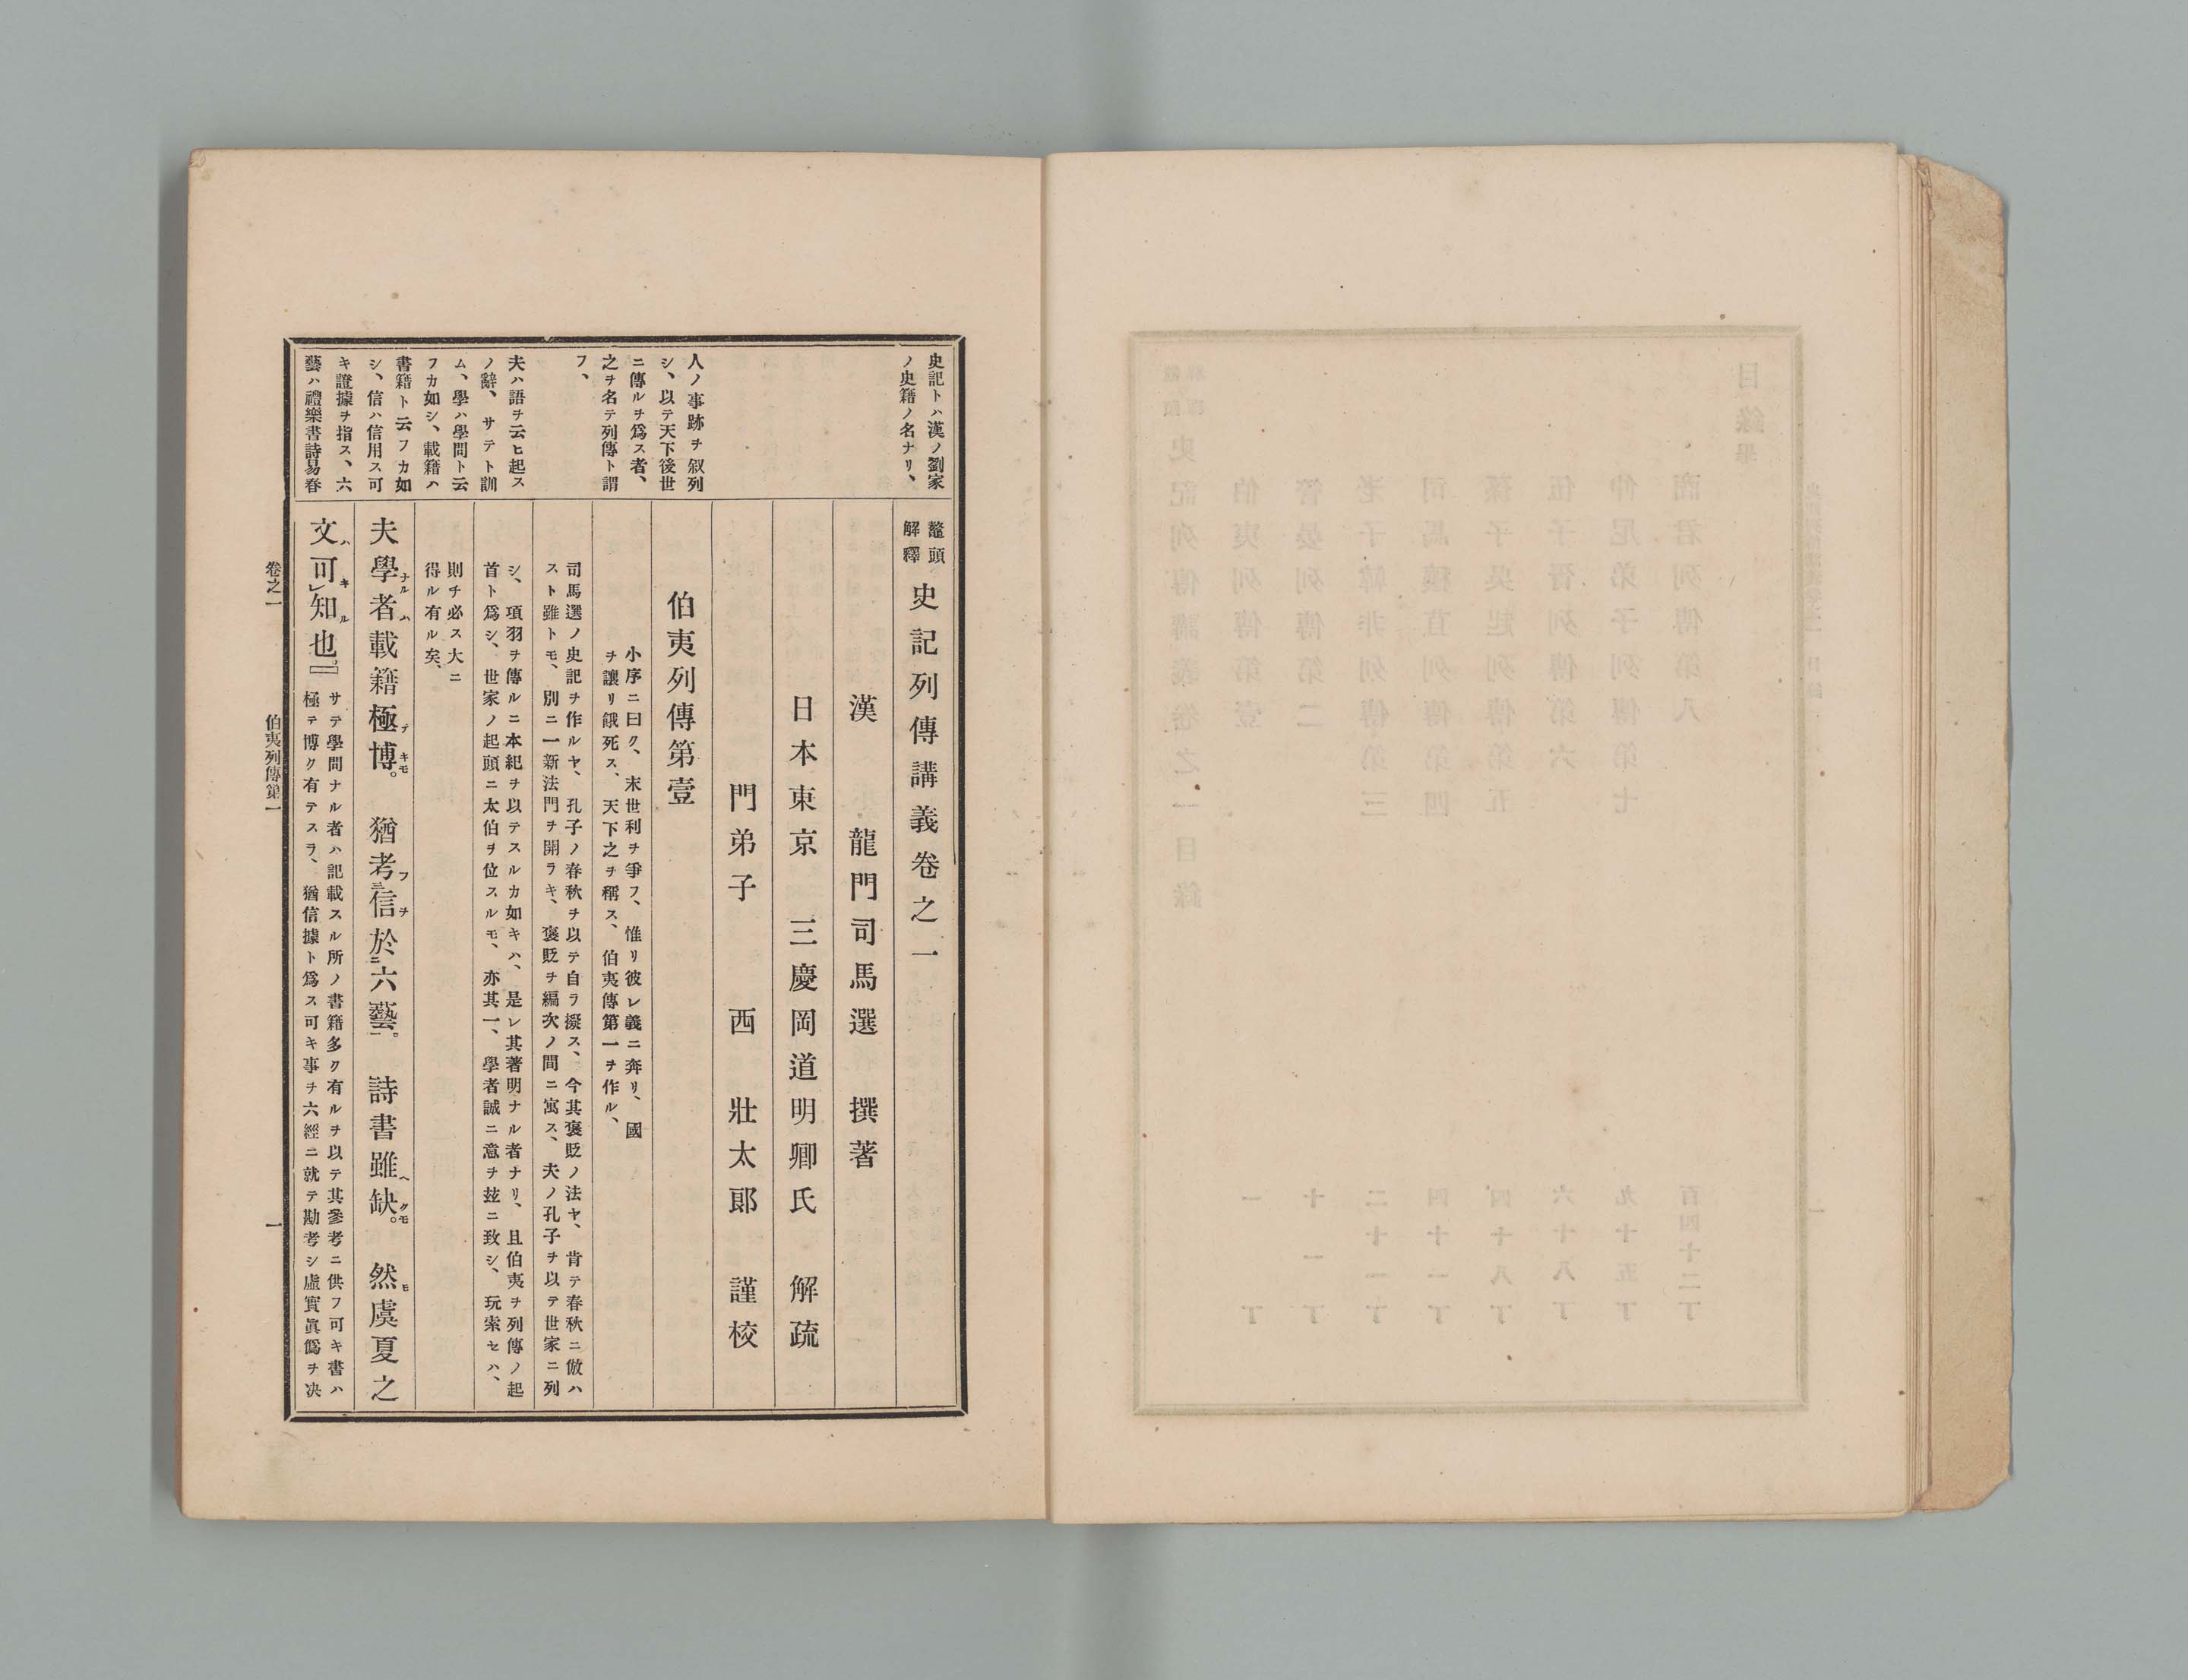 史記トハ漢ノ劉家
ノ史籍ノ名ナリ、
人ノ事跡ヲ叙列
シ、以テ天下後世
ニ傳ルヲ爲ス者、
之ヲ名テ列傳ト謂
フ、
夫ハ語ヲ云ヒ起ス
ノ辭、サテト訓
ム、學ハ學問ト云
フカ如シ、載籍ハ
書籍ト云フカ如
シ、信ハ信用ス可
キ證據ヲ指ス、六
藝ハ禮樂書詩易春
鼇頭
解釋
史記列傳講義卷之一
漢 龍門司馬遷 撰著
日本東京 三慶岡道明卿氏 解疏
門弟子 西 壯太郎 謹校
伯夷列傳第壹
小序ニ曰ク、末世利ヲ爭フ、惟リ彼レ義ニ奔リ、國
ヲ讓リ餓死ス、天下之ヲ稱ス、伯夷傳第一ヲ作ル、
司馬遷ノ史記ヲ作ルヤ、孔子ノ春秋ヲ以テ自ラ擬ス、今其褒貶ノ法ヤ、肯テ春秋ニ倣ハ
スト雖トモ、別ニ一新法門ヲ開ラキ、褒貶ヲ編次ノ間ニ寓ス、夫ノ孔子ヲ以テ世家ニ列
シ、項羽ヲ傳ルニ本紀ヲ以テスルカ如キハ、是レ其著明ナル者ナリ、且伯夷ヲ列傳ノ起
首ト爲シ、世家ノ起頭ニ太伯ヲ位スルモ、亦其一、學者誠ニ意ヲ玆ニ致シ、玩索セハ、
則チ必ス大ニ
得ル有ル矣、
夫學者ナルハ載籍極テ博キモ。猶考フ三信ヲ於二六藝一。詩書雖ヘ缺クモ。然モ虞夏之
文ハ可キレ知ル也。
サテ學問ナル者ハ記載スル所ノ書籍多ク有ルヲ以テ其參考ニ供フ可キ書ハ
極テ博ク有テスラ、猶信據ト爲ス可キ事ヲ六經ニ就テ勘考シ虛實眞僞ヲ决
卷之一
伯夷列傳第一
一
目錄畢
商君列傳第八 百四十二丁
仲尼弟子列傳第七 九十五丁
伍子胥列傳第六 六十八丁
孫子吳起列傳第五 四十八丁
司馬穰苴列傳第四 四十一丁
老子韓非列傳第三 二十一丁
管晏列傳第二 十一丁
伯夷列傳第壹 一丁
史記列傳講義卷之一目錄